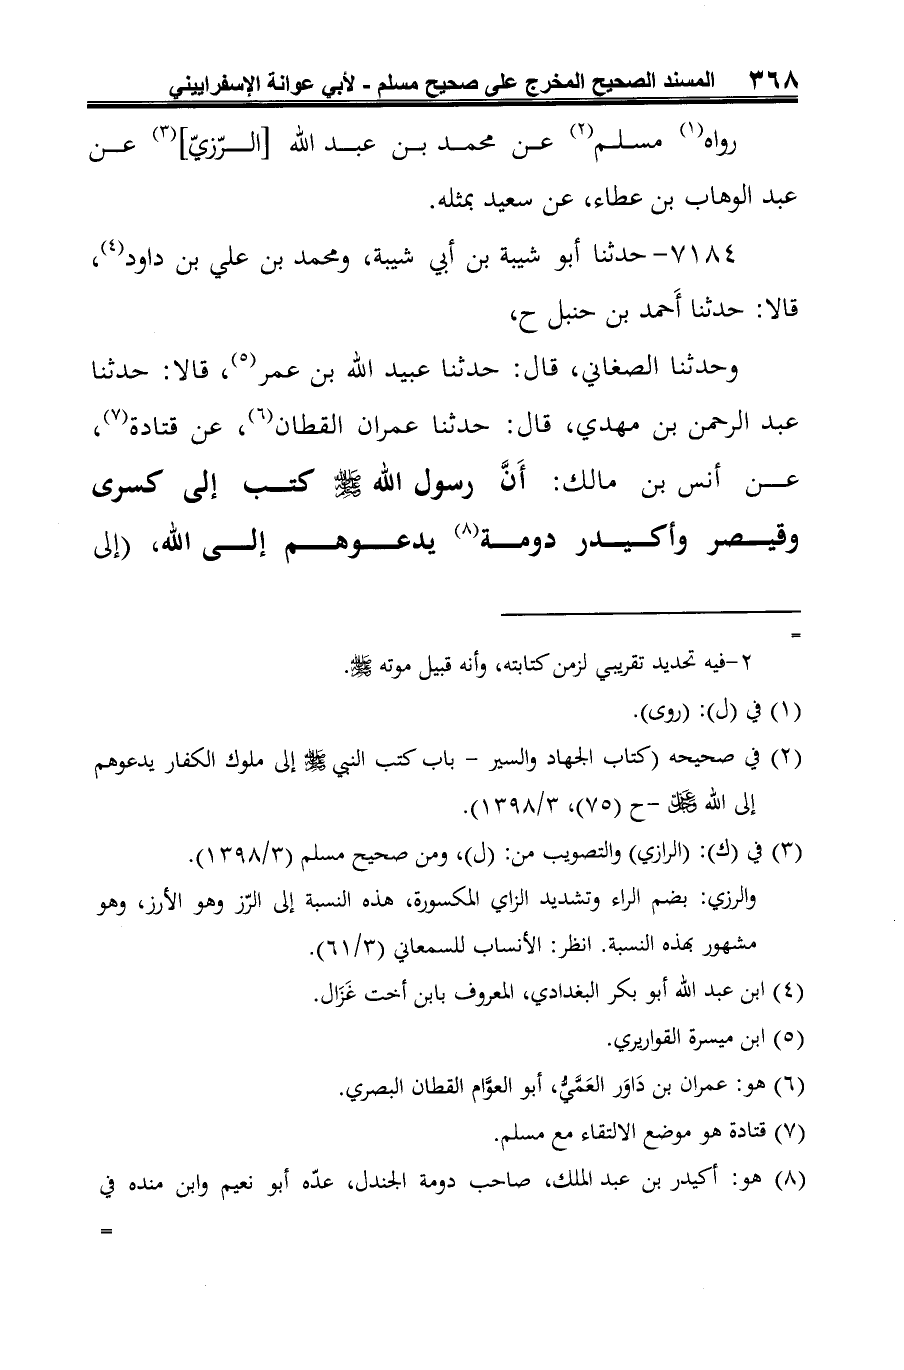 ٣٦٨ المسند الصحيح المخرج على صحيح مسلم - لأبي عوانة الإسفراييني
رواه(١) مسلم(٢) عن محمد بن عبد الله [الرّزيّ](٣) عن
عبد الوهاب بن عطاء، عن سعيد بمثله.
٧١٨٤- حدثنا أبو شيبة بن أبي شيبة، ومحمد بن علي بن داود(٤)،
قالا: حدثنا أَحمد بن حنبل ح،
وحدثنا الصغاني، قال: حدثنا عبيد الله بن عمر(٥)، قالا: حدثنا
عبد الرحمن بن مهدي، قال: حدثنا عمران القطان(٦)، عن قتادة(٧)،
عن أنس بن مالك: أَنَّ رسول الله ﷺ كتب إلى كسرى
وقيصر وأكيدر دومة(٨) يدعوهم إلى الله، (إلى
=
٢-فيه تحديد تقريبي لزمن كتابته، وأنه قبيل موته ﷺ.
(١) في (ل): (روى).
(٢) في صحيحه (كتاب الجهاد والسير - باب كتب النبي ﷺ إلى ملوك الكفار يدعوهم
إلى الله ﷻ -ح (٧٥)، ١٣٩٨/٣).
(٣) في (ك): (الرازي) والتصويب من: (ل)، ومن صحيح مسلم (١٣٩٨/٣).
والرزي: بضم الراء وتشديد الزاي المكسورة، هذه النسبة إلى الرّز وهو الأرز، وهو
مشهور بهذه النسبة. انظر: الأنساب للسمعاني (٦١/٣).
(٤) ابن عبد الله أبو بكر البغدادي، المعروف بابن أخت غَزَال.
(٥) ابن ميسرة القواريري.
(٦) هو: عمران بن دَاوَر العَمَّيُّ، أبو العوَّام القطان البصري.
(٧) قتادة هو موضع الالتقاء مع مسلم.
(٨) هو: أكيدر بن عبد الملك، صاحب دومة الجندل، عدّه أبو نعيم وابن منده في
=